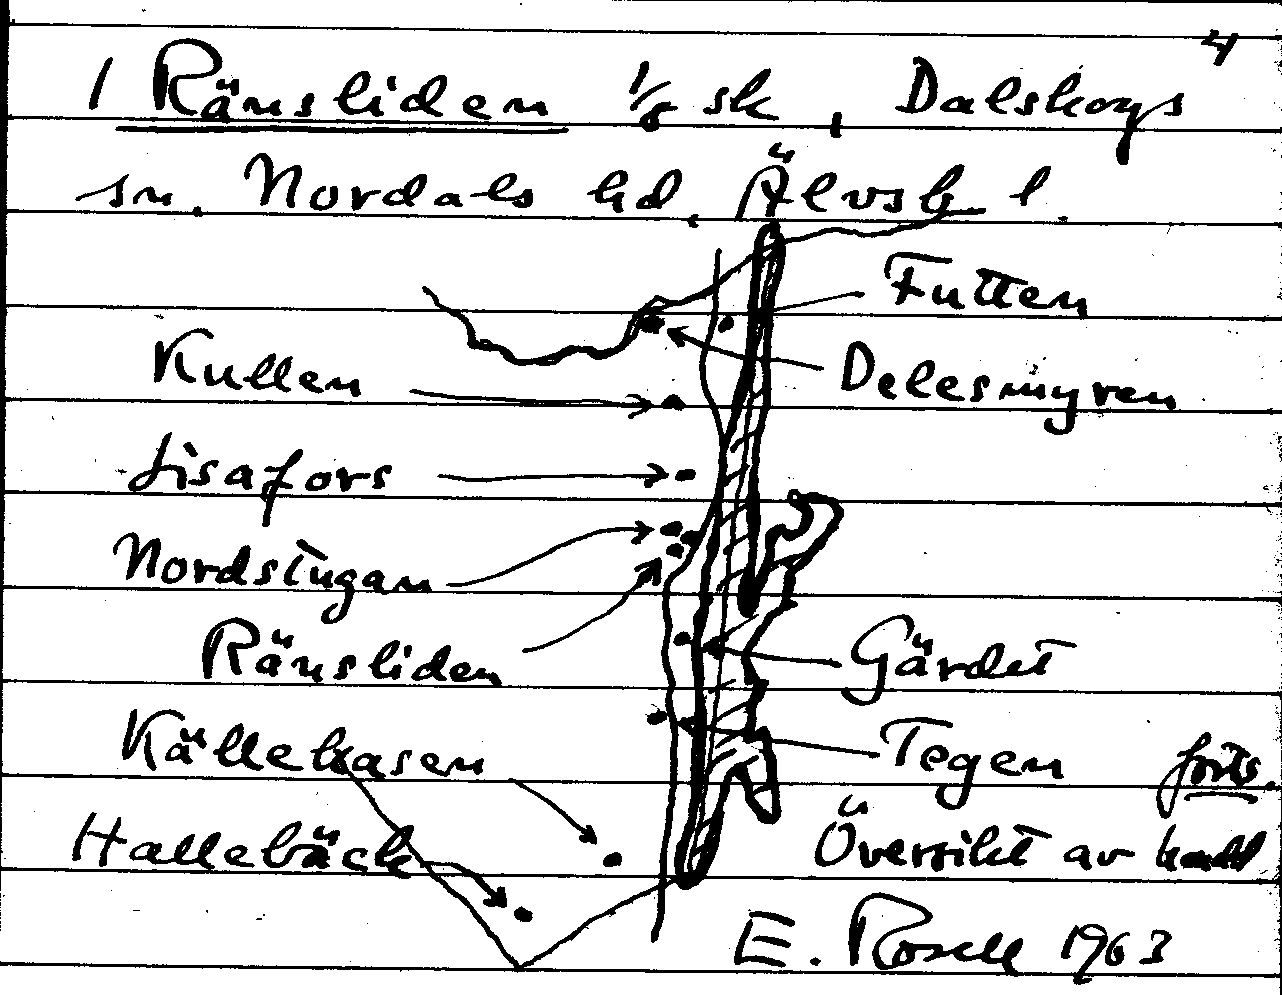 4
1 Ränsliden 1/8 sk, Dalskogs
sn. Nordals hd. Älvsb l.
Futten
Kullen
Delesmyren
Lisafors
Nordstugan
Ränsliden
Gärdet
Källehasen
Tegen
forts.
Hallebäck
Översikt av
E. Rosell 1963